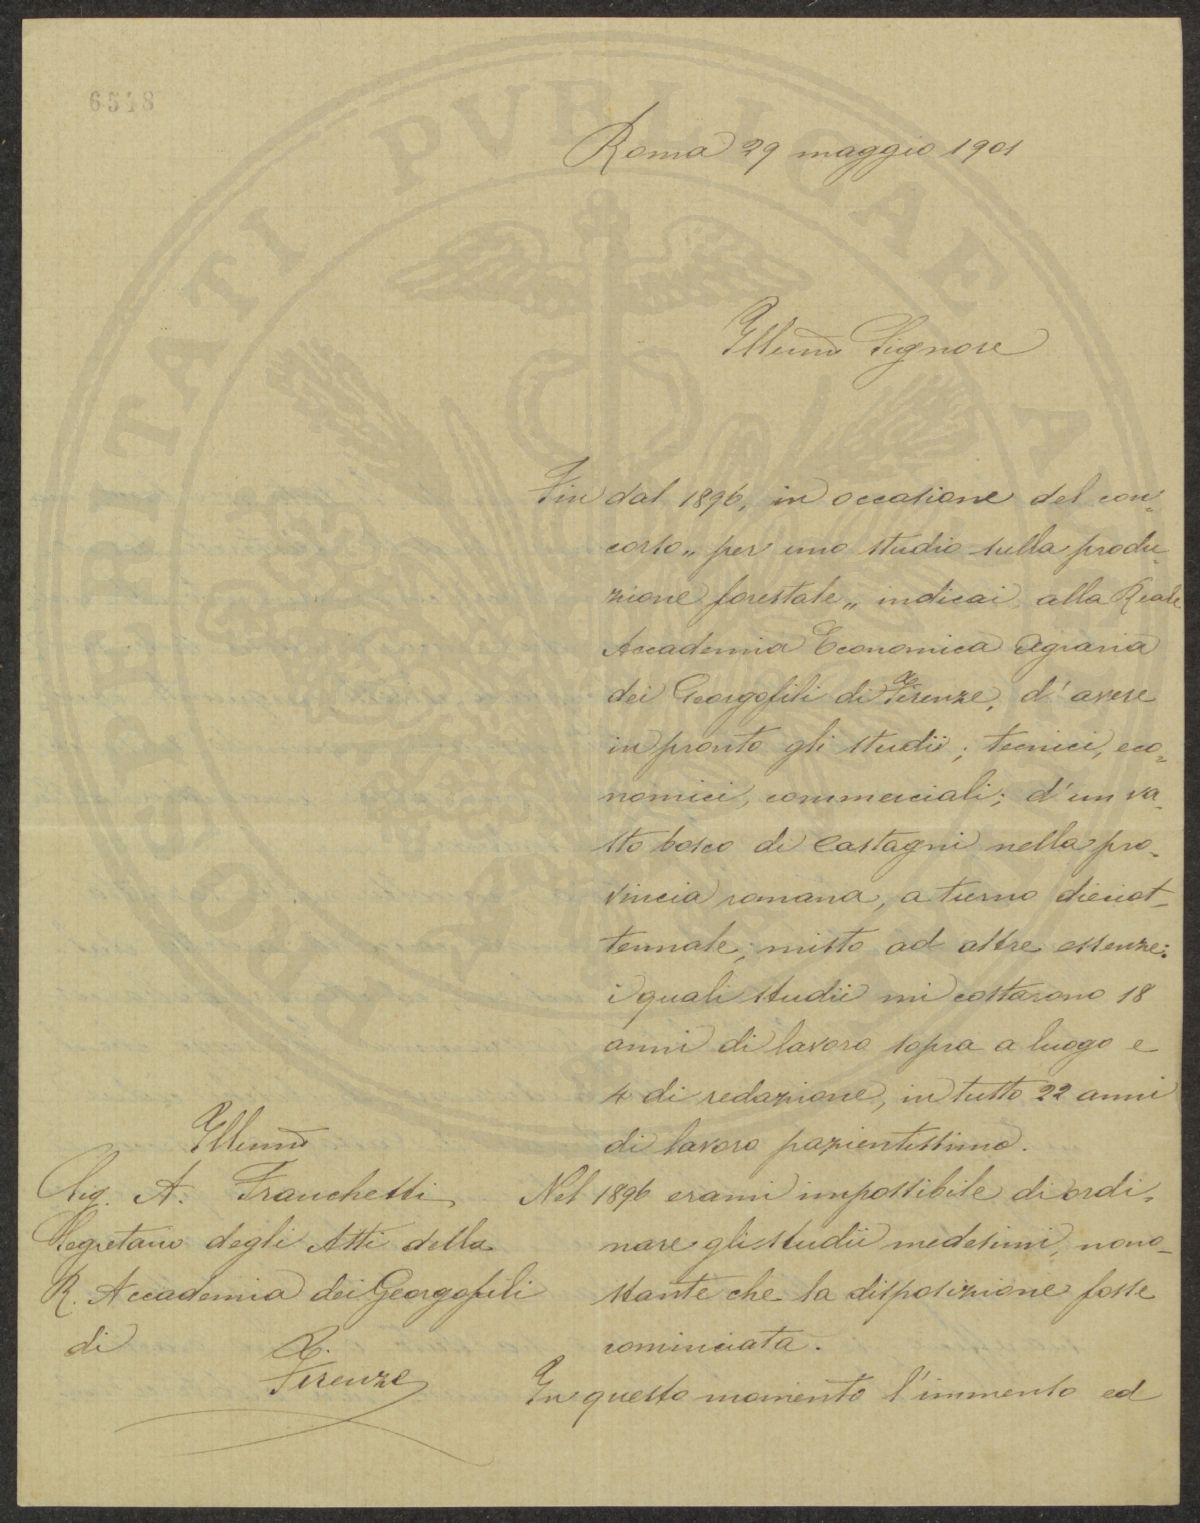 6548
PROSPERITATI PVBLICAE A
Roma 29 maggio 1901
Illumo Signore
Fin dal 1896, in occasione del con-
corso „ per uno studio sulla produ-
zione forestale „ indicai alla Reale
Accademia Economica Agraria
dei Georgofili di Firenze, d'avere
in pronto gli studii; tecnici, eco-
nomici, commerciali; d'un va-
sto bosco di Castagni nella pro-
vincia romana, a turno diciot-
tennale, misto ad altre essenze:
i quali studii mi costarono 18
anni di lavoro sopra a luogo e
4 di redazione, in tutto 22 anni
di lavoro pazientissimo.
Nel 1896 erami impossibile di ordi-
nare gli studii medesimi, nono-
stante che la disposizione fosse
cominciata.
In questo momento l'immenso ed
Illumo
Sig. A. Franchetti
Segretario degli Atti della
R. Accademia dei Georgofili
di
Firenze